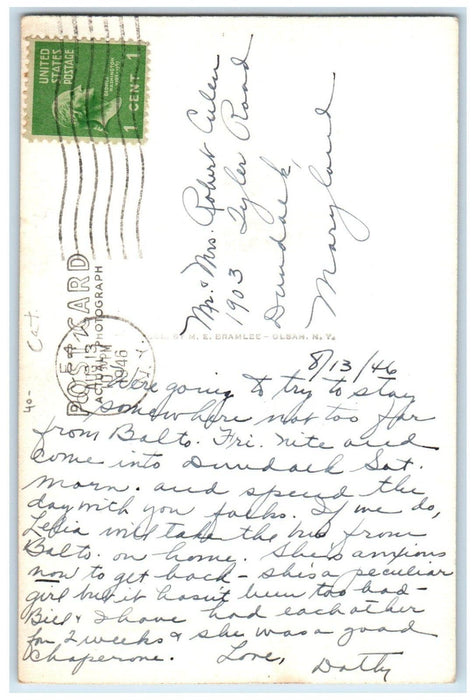 UNITED
STATES
POSTAGE
GEORGE
WASHINGTON
1 CENT 1
POST CARD
ACTUAL PHOTOGRAPH
AUG 13
1946
N. Y.
Mr. & Mrs. Robert Culen
1903 Tyler Road
Dundalk,
Maryland
BY M. E. BRAMLEE - OLEAN, N. Y.
Cat.
40-
8/13/46
We're going to try to stay
somewhere not too far
from Balto. Fri. nite and
come into Dundalk Sat.
morn. and spend the
day with you folks. If we do,
will take the bus from
Balto. on home. She's anxious
now to get back - she's a peculiar
girl but it hasn't been too bad -
Bill & I have had each other
for 2 weeks & she was a good
chaperone. Love,
Dotty